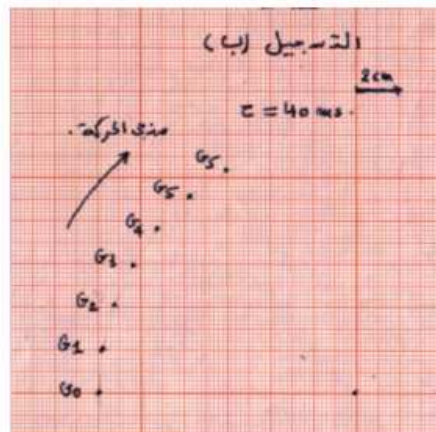 التسجيل (ب)
2cm
τ = 40 ms.
منحى الحركة.
G5
G5
G4
G3
G2
G1
G0